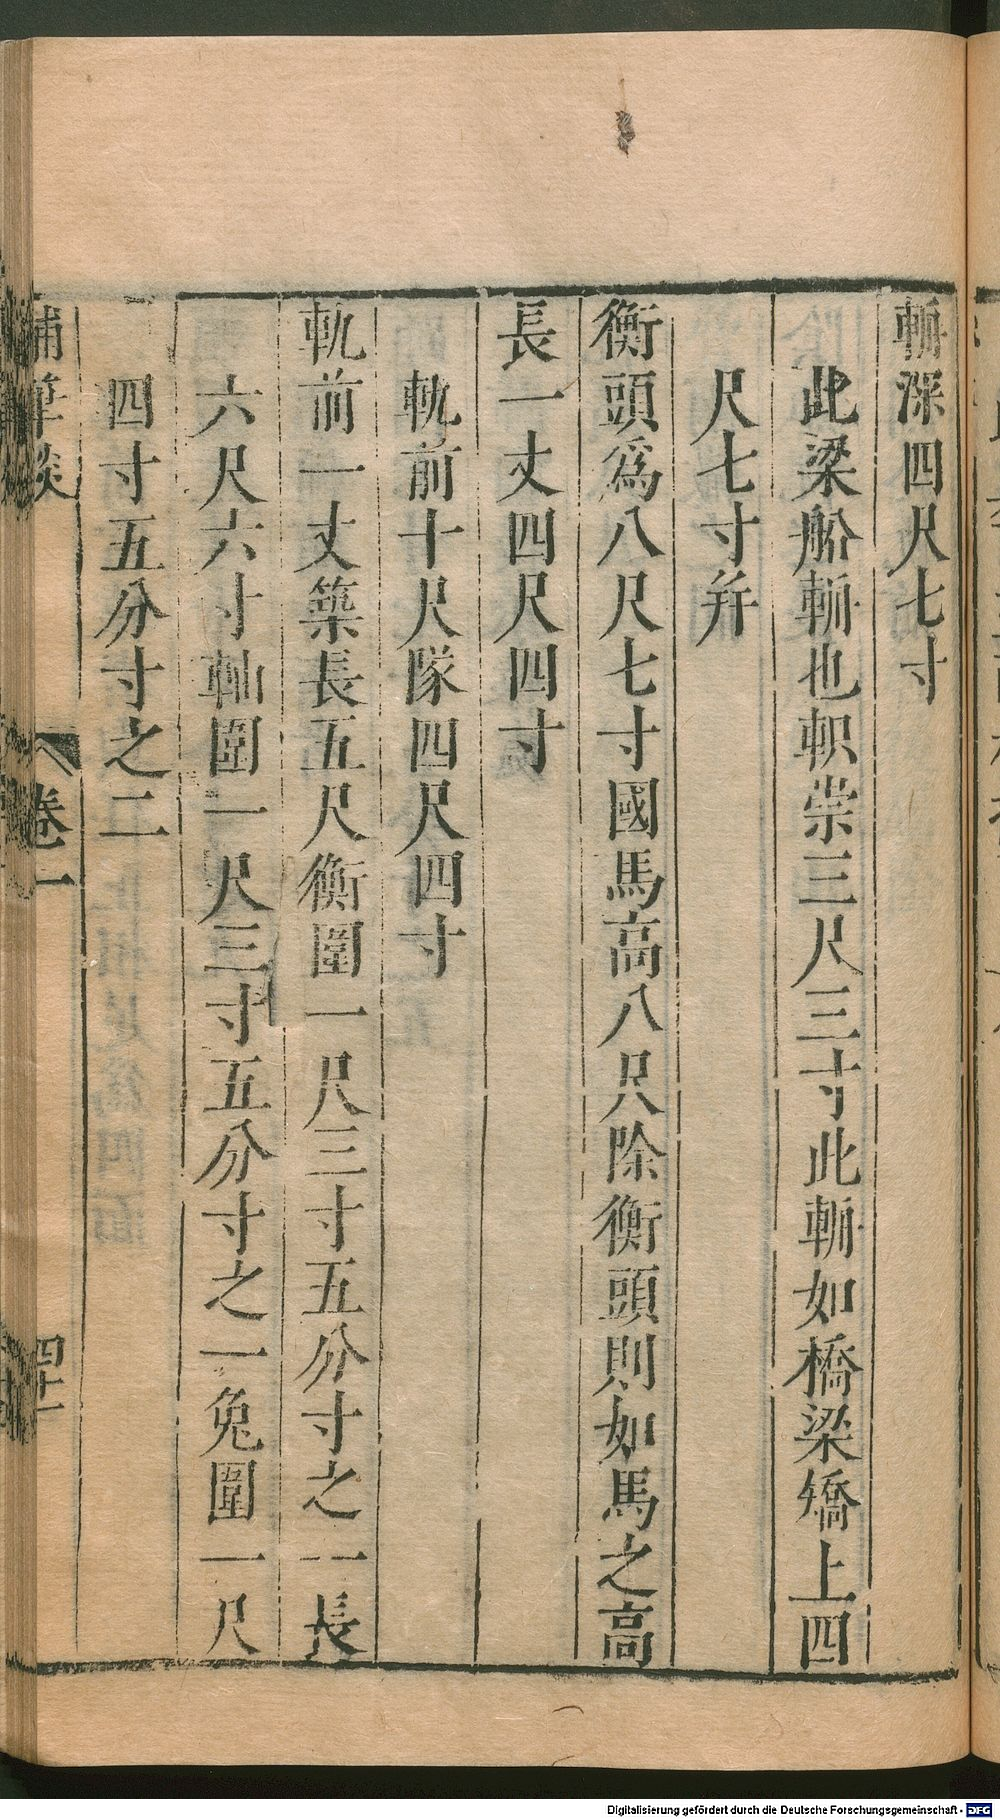 輈深四尺七寸
此梁船輈也軹崇三尺三寸此輈如橋梁矯上四
尺七寸并
衡頭爲八尺七寸國馬高八尺除衡頭則如馬之高
長一丈四尺四寸
軌前十尺隊四尺四寸
軌前一丈築長五尺衡圍一尺三寸五分寸之一長
六尺六寸軸圍一尺三寸五分寸之一兔圍一尺
四寸五分寸之二
補筆談 卷一 四十一
Digitalisierung gefördert durch die Deutsche Forschungsgemeinschaft - DFG